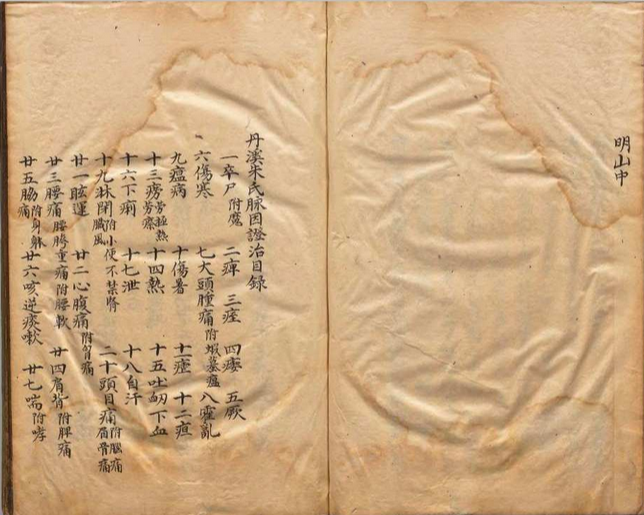 明山中
丹溪朱氏脉因證治目錄
一卒尸附魘 二痺 三痓 四痿 五厥
六傷寒 七大頭腫痛附蝦蟇瘟 八霍亂
九瘟病 十傷暑 十一 十二疸
十三癆勞極熱勞瘵 十四熱 十五吐衂下血
十六下痢 十七泄 十八自汗
十九淋閉附小便不禁腎臟風 二十頭目痛附腦痛眉骨痛
廿一眩運 廿二心腹痛附胃痛
廿三腰痛腰胯重痛附腰軟 廿四肩背附脾痛
廿五脇痛附身躰 廿六咳逆痰嗽 廿七喘附哮